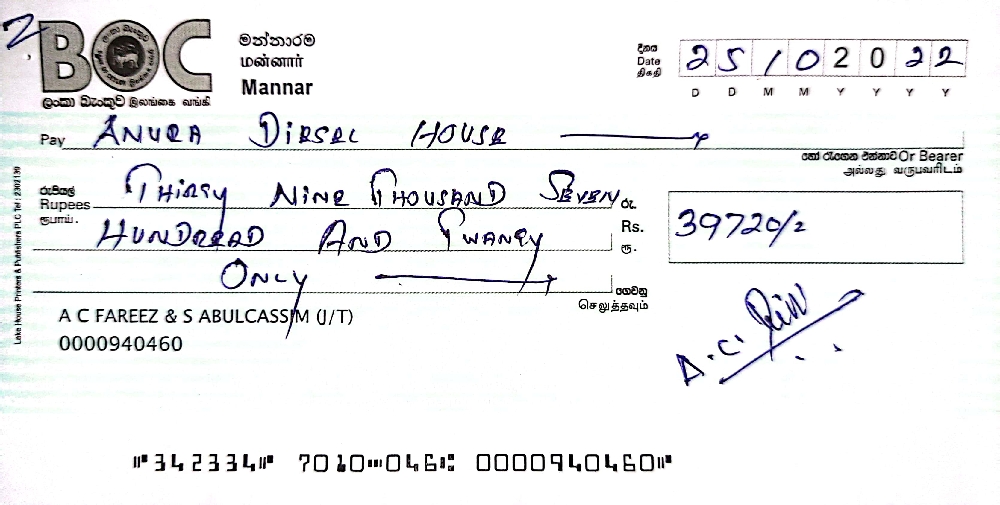 2
BOC
ලංකා බැංකුව இலங்கை வங்கி
මන්නාරම
மன்னார்
Mannar
දිනය
Date
திகதி
25102022
D D M M Y Y Y Y
Pay ANURA DIESEL HOUSE
හෝ රැගෙන එන්නාට Or Bearer
அல்லது வருபவரிடம்
රුපියල්
Rupees
ரூபாய்.
THIRTY NINE THOUSAND SEVEN
HUNDREAD AND TWANTY
ONLY
රු.
Rs.
ரூ.
39720/=
ගෙවනු
செலுத்தவும்
A C FAREEZ & S ABULCASSIM (J/T)
0000940460
A.C.
Lake House Printers & Publishers PLC Tel : 2302139
⑈342334⑈ 7010⑉046⑆ 0000940460⑈